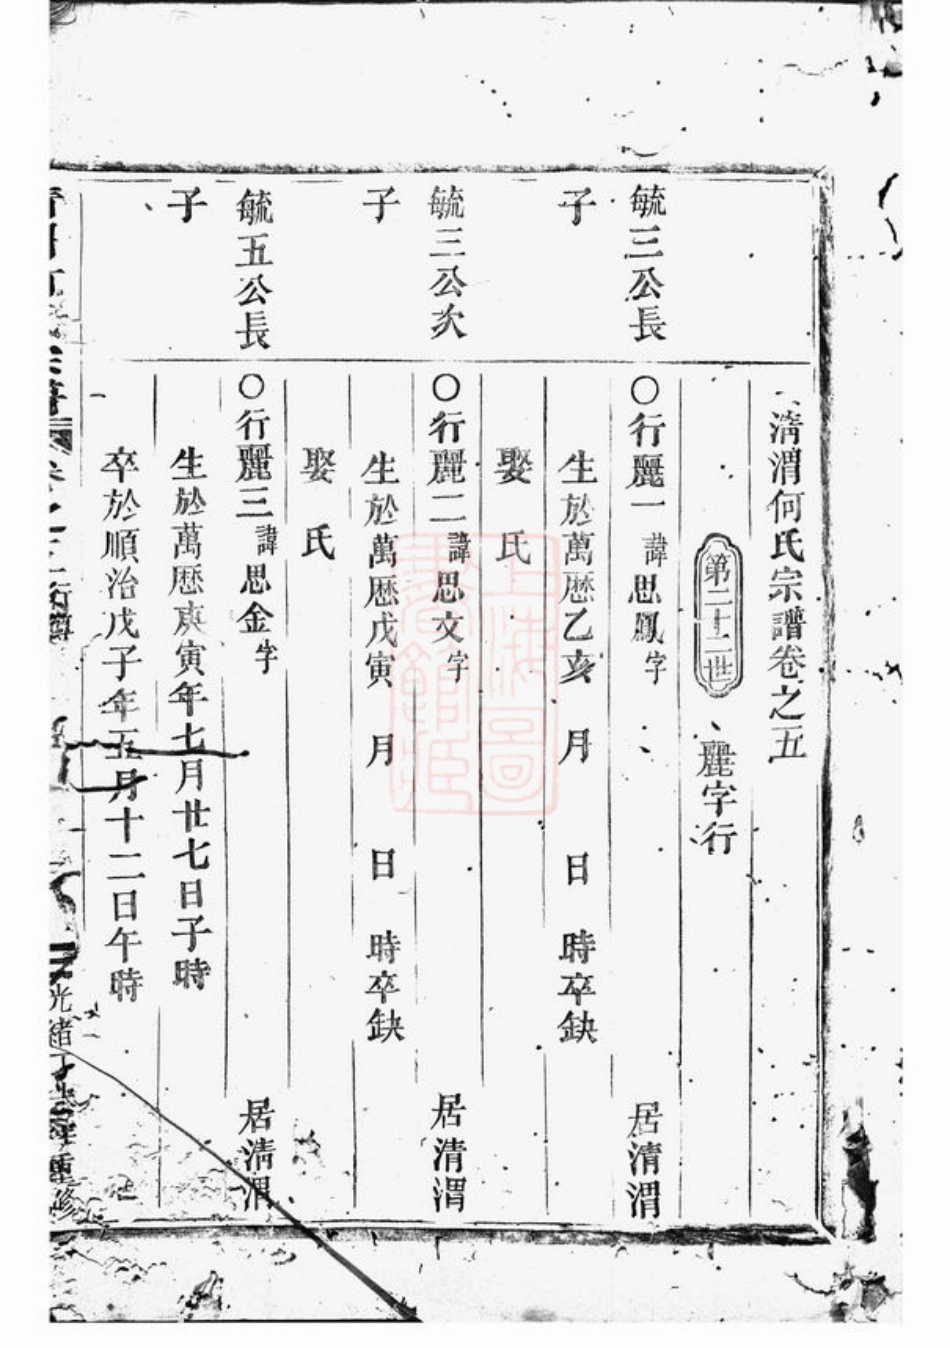 清渭何氏宗譜卷之五
第二十二世 麗字行
毓三公長 〇行麗一 諱思鳳字 居清渭
子 生於萬歷乙亥 月 日 時卒缺
娶 氏
毓三公次 〇行麗二 諱思文字 居清渭
子 生於萬歷戊寅 月 日 時卒缺
娶 氏
毓五公長 〇行麗三 諱思金字 居清渭
子 生於萬歷庚寅年七月廿七日子時
卒於順治戊子年五月十二日午時
光緒 重修
上海圖書館藏